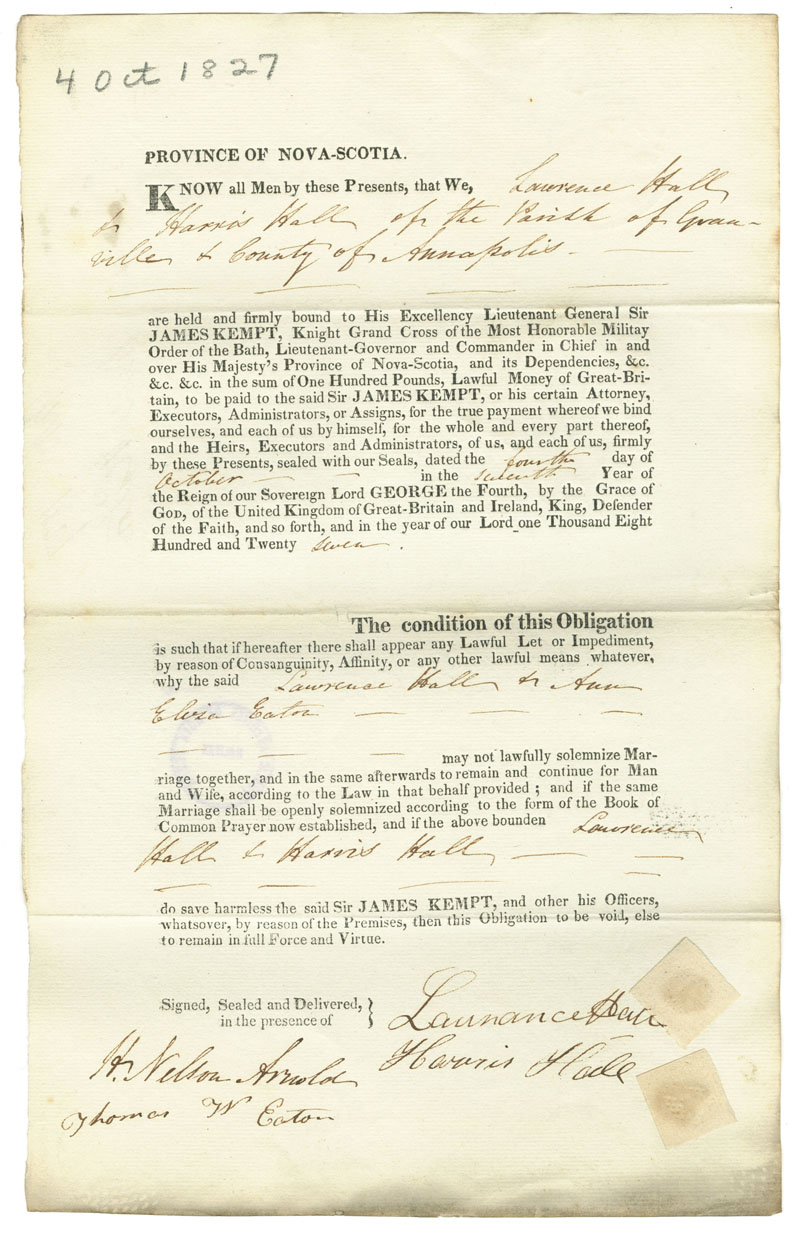 4 Oct 1827
PROVINCE OF NOVA-SCOTIA.
KNOW all Men by these Presents, that We, Lawrence Hall
& Harris Hall of the Parish of Gran-
ville & County of Annapolis
are held and firmly bound to His Excellency Lieutenant General Sir
JAMES KEMPT, Knight Grand Cross of the Most Honorable Militay
Order of the Bath, Lieutenant-Governor and Commander in Chief in and
over His Majesty's Province of Nova-Scotia, and its Dependencies, &c.
&c. &c. in the sum of One Hundred Pounds, Lawful Money of Great-Bri-
tain, to be paid to the said Sir JAMES KEMPT, or his certain Attorney,
Executors, Administrators, or Assigns, for the true payment whereof we bind
ourselves, and each of us by himself, for the whole and every part thereof,
and the Heirs, Executors and Administrators, of us, and each of us, firmly
by these Presents, sealed with our Seals, dated the fourth day of
October in the seventh Year of
the Reign of our Sovereign Lord GEORGE the Fourth, by the Grace of
GOD, of the United Kingdom of Great-Britain and Ireland, King, Defender
of the Faith, and so forth, and in the year of our Lord one Thousand Eight
Hundred and Twenty seven.
The condition of this Obligation
is such that if hereafter there shall appear any Lawful Let or Impediment,
by reason of Consanguinity, Affinity, or any other lawful means whatever,
why the said Lawrence Hall & Ann
Eliza Eaton
may not lawfully solemnize Mar-
riage together, and in the same afterwards to remain and continue for Man
and Wife, according to the Law in that behalf provided ; and if the same
Marriage shall be openly solemnized according to the form of the Book of
Common Prayer now established, and if the above bounden Lawrence
Hall & Harris Hall
do save harmless the said Sir JAMES KEMPT, and other his Officers,
whatsover, by reason of the Premises, then this Obligation to be void, else
to remain in full Force and Virtue.
Signed, Sealed and Delivered, } Laurance Hall
in the presence of
H. Nelson Arnold Harris Hall
Thomas W Eaton